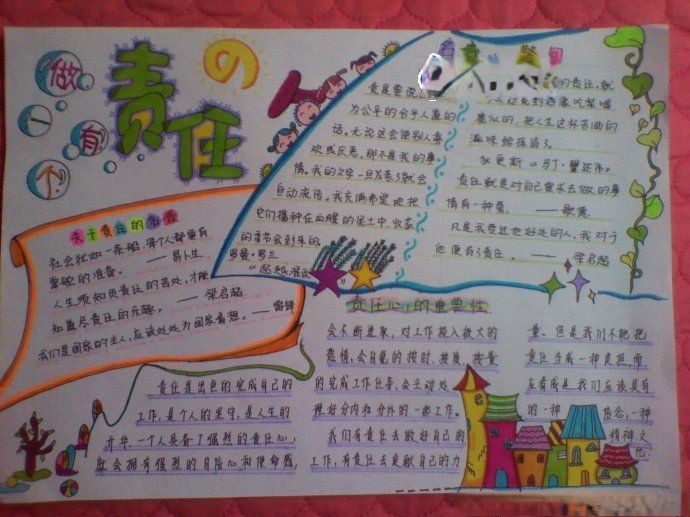 做一有个
责任
の
名言 警句
责是要说
为公平的合乎人道的
话。无论这会使别人喜
欢或厌恶,那不是我的事
情。我的文字一旦发表了就会
自动流传。我充满希望地把
它们播种在血腥的泥土中,收获
的季节会到来的
罗曼·罗兰
的责任,就
义似的,把人生这杯苦酒的
滋味给抹煞了。
狄更斯
责任就是对自己要求去做的事
情有一种爱。 ——歌德
凡是我受过他好处的人,我对于
他便有了责任。 ——梁启超
关于责任的名言
社会犹如一条船,每个人都要有
掌舵的准备。 ——易卜生
人生须知负责任的苦处,才能
知道尽责任的乐趣。 ——梁启超
我们是国家的主人,应该处处为国家着想。——雷锋
责任心的重要性
责任是出色的完成自己的
工作,是个人的坚守,是人生的
升华。一个人具备了强烈的责任心,
就会拥有强烈的自信心和使命感,
会不断进取,对工作投入极大的
热情,会自觉的按时、按质、按量
的完成工作任务,会主动处
理好分内和分外的一些工作。
我们有责任去做好自己的
工作,有责任去贡献自己的力
量。但是我们不能把
责任当成一种负担,而
应看成是我们应该具有
的一种 信念,一种
精神支
柱。